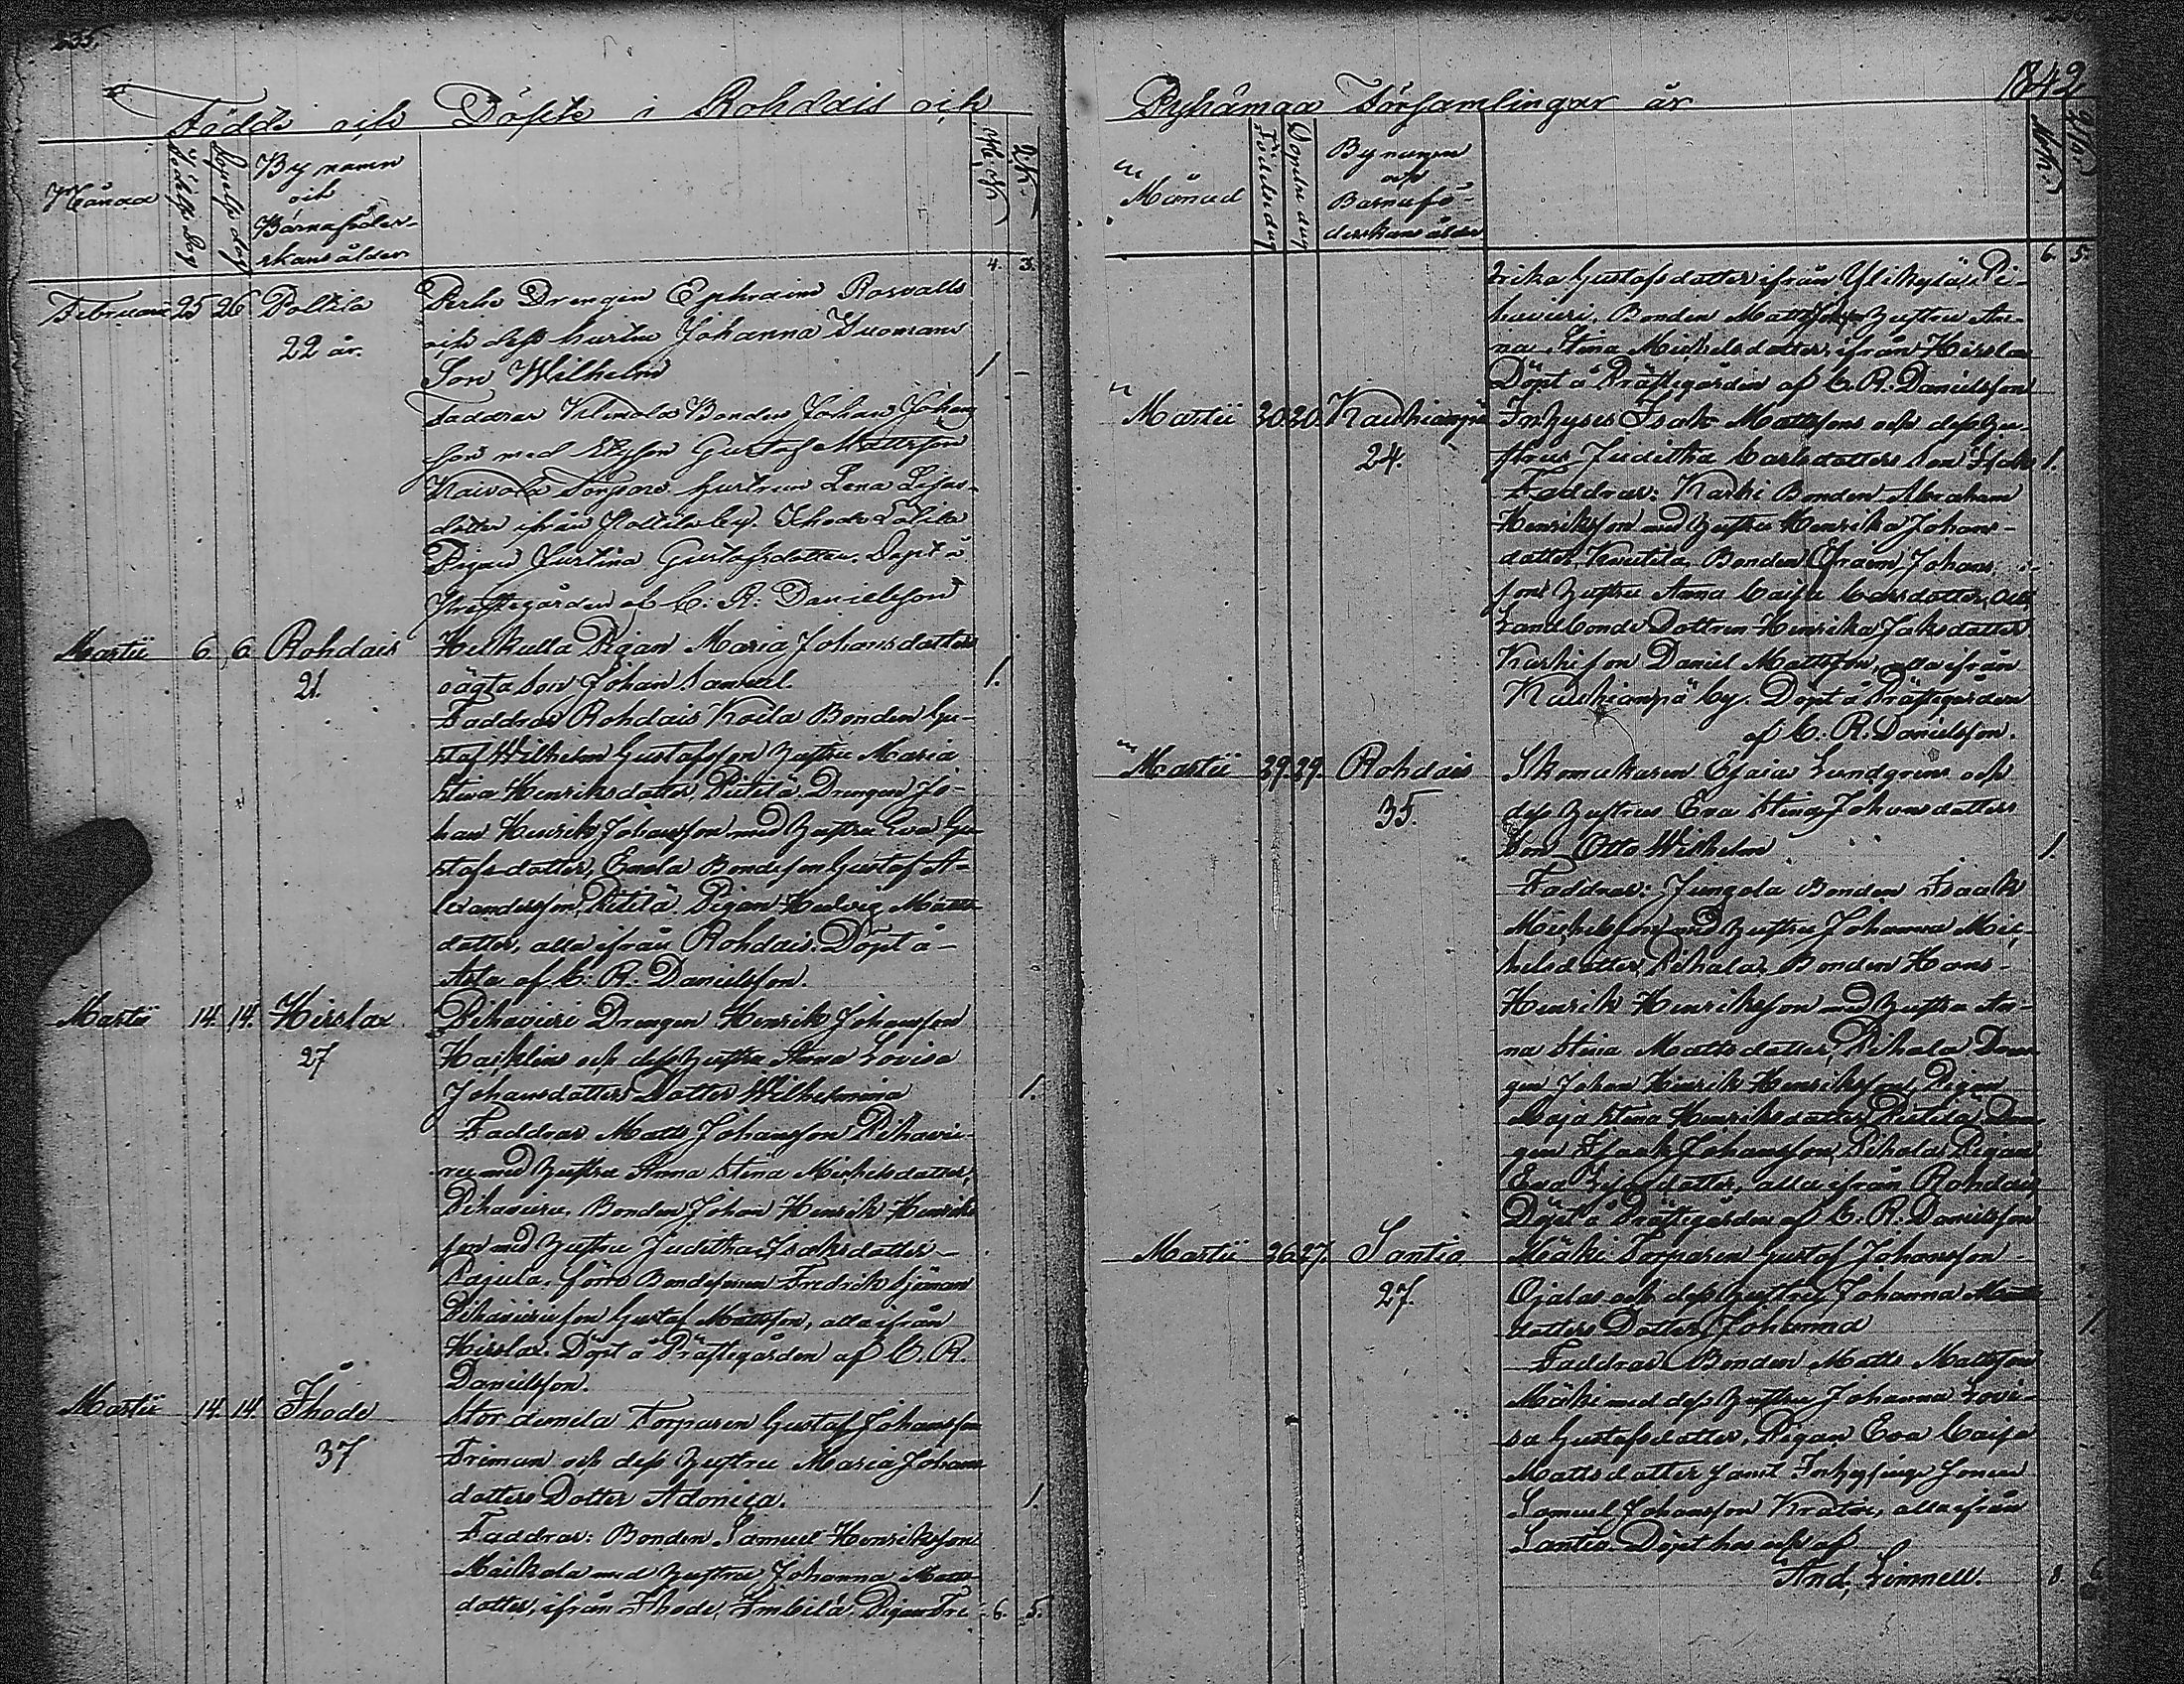 235.
Födde och Döpte i Rohdais och
Månad
Födelse Dag
Döpelse dag
By namn
och
Barnaföder-
skans ålder
M. K.
Q. K.
4. 3.
Februarii 25 26 Poltila Perho Drengen Ephraim Rosvalls
22 år. och dess hustru Johanna Tuomans
Son Wilhelm 1
Faddrar Klemola Bonden Johan Johans
son med Gustaf Mattsson
Kaivola Torpare hustrun Lena Lijas-
dotter ifrån Poltila by.
Pigan Justina Gustafsdotter. Döpt å
Prestegården af C: R: Danielsson
Martii 6 6 Rohdais Heikkilla Pigan Maria Johansdotters
21. oägta son Johan Samuel. 1.
Faddrar Rohdais Koila Bonden Gu-
staf Wilhelm Gustafsson hustru Maria
Stina Henriksdotter, Pietilä Drengen Jo-
han Henrik Johansson med hustru Eva Gu-
stafsdotter, Eenola Bondeson Gustaf A-
lexandersson, Pietilä Pigan Hedvig Matts-
dotter, alla ifrån Rohdais. Döpt å
Arla af C: R: Danielsson.
Martii 14. 14. Hirslax Pihavieri Drengen Henrik Johansson
27 Harklins och dess hustru Anna Lovisa
Johansdotters Dotter Wilhelmina 1.
Faddrar Matts Johansson Pihavie-
ru med hustru Anna Stina Michelsdotter,
Pihavieru Bonden Johan Henrik Henriks
son med hustru Juditha Isaksdotter
Pajula, förra Bondesonen Fredrik
Pihavieri son Gustaf Mattsson, alla ifrån
Hirslax. Döpt å Prästegården af C. R.
Danielsson.
Martii 14. 14. Ihode Stor Torparen Gustaf Johansson
37 Friman och dess hustru Maria Johans
dotters Dotter Adonica. 1.
Faddrar: Bonden Samuel Henriksson
Maikola med hustru Johanna Matts-
dotter, ifrån Ihode, Imbilä Pigan Fre- 6. 5.
Pyhämaa Församlingar år 1842
Månad
Födelse dag
Döpelse dag
By namn
och
Barnafö-
derskans ålder
6. 5.
drika Gustafsdotter ifrån Pi-
havieri, Bonden Matts hustru An-
na Stina Michelsdotter, ifrån Hirslax
Döpt å Prästegården af C. R. Danielsson
Martii 20. 20. Kauhianpä Inhyses Isak Mattssons och dess hu-
24. strus Juditha Carlsdotters son Isak 1.
Faddrar: Karhi Bonden Abraham
Henriksson med hustru Henrika Johans-
dotter, Knutila Bonden Efraim Johans
sons hustru Anna Caisa
Landbonde Dottren Henrika Jaksdotter
Karhi son Daniel Mattsson, alla ifrån
Kauhianpä by. Döpt å Prästegården
af C. R. Danielsson.
Martii 29. 29. Rohdais Skomakaren Esaias Lundgrens och
35. dess hustrus Eva Stina Johansdotters
Son Otto Wilhelm 1.
Faddrar: Jungola Bonden Isaak
Michelsson med hustru Johanna Mic-
helsdotter, Pihala Bonden Hans
Henrik Henriksson med hustru An-
na Stina Mattsdotter, Pihala Dren-
gen Johan Henrik Henriksson, Pigan
Maja Stina Henriksdotter, Pietilä Dren-
gen Isaak Johansson, Pihala Pigan
Eva dotter, alla ifrån Rohdais
Döpt å Prästegården af C. R. Danielsson
Martii 26. 27. Santio Mäki Torparen Gustaf Johansson
27. Ojalas och dess hustru Johanna Matts
dotters Dotter Johanna 1.
Faddrar Bonden Matts Mattsson
Mäki med dess hustru Johanna Lovi-
sa Gustafsdotter, Pigan Eva Caisa
Mattsdotter samt Inhysinge Sonen
Samuel Johansson Kratin, alla ifrån
Santio Döpt hos och af
And. Limnell. 8. 6